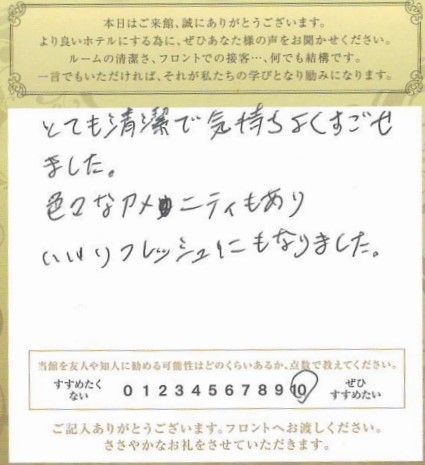 本日はご来館、誠にありがとうございます。
より良いホテルにする為に、ぜひあなた様の声をお聞かせください。
ルームの清潔さ、フロントでの接客…、何でも結構です。
一言でもいただければ、それが私たちの学びとなり励みになります。
とても清潔で気持ちよくすごせ
ました。
色々なアメニティもあり
いいリフレッシュにもなりました。
当館を友人や知人に勧める可能性はどのくらいあるか、点数で教えてください。
すすめたく
ない
0 1 2 3 4 5 6 7 8 9 10
ぜひ
すすめたい
ご記入ありがとうございます。フロントへお渡しください。
ささやかなお礼をさせていただきます。